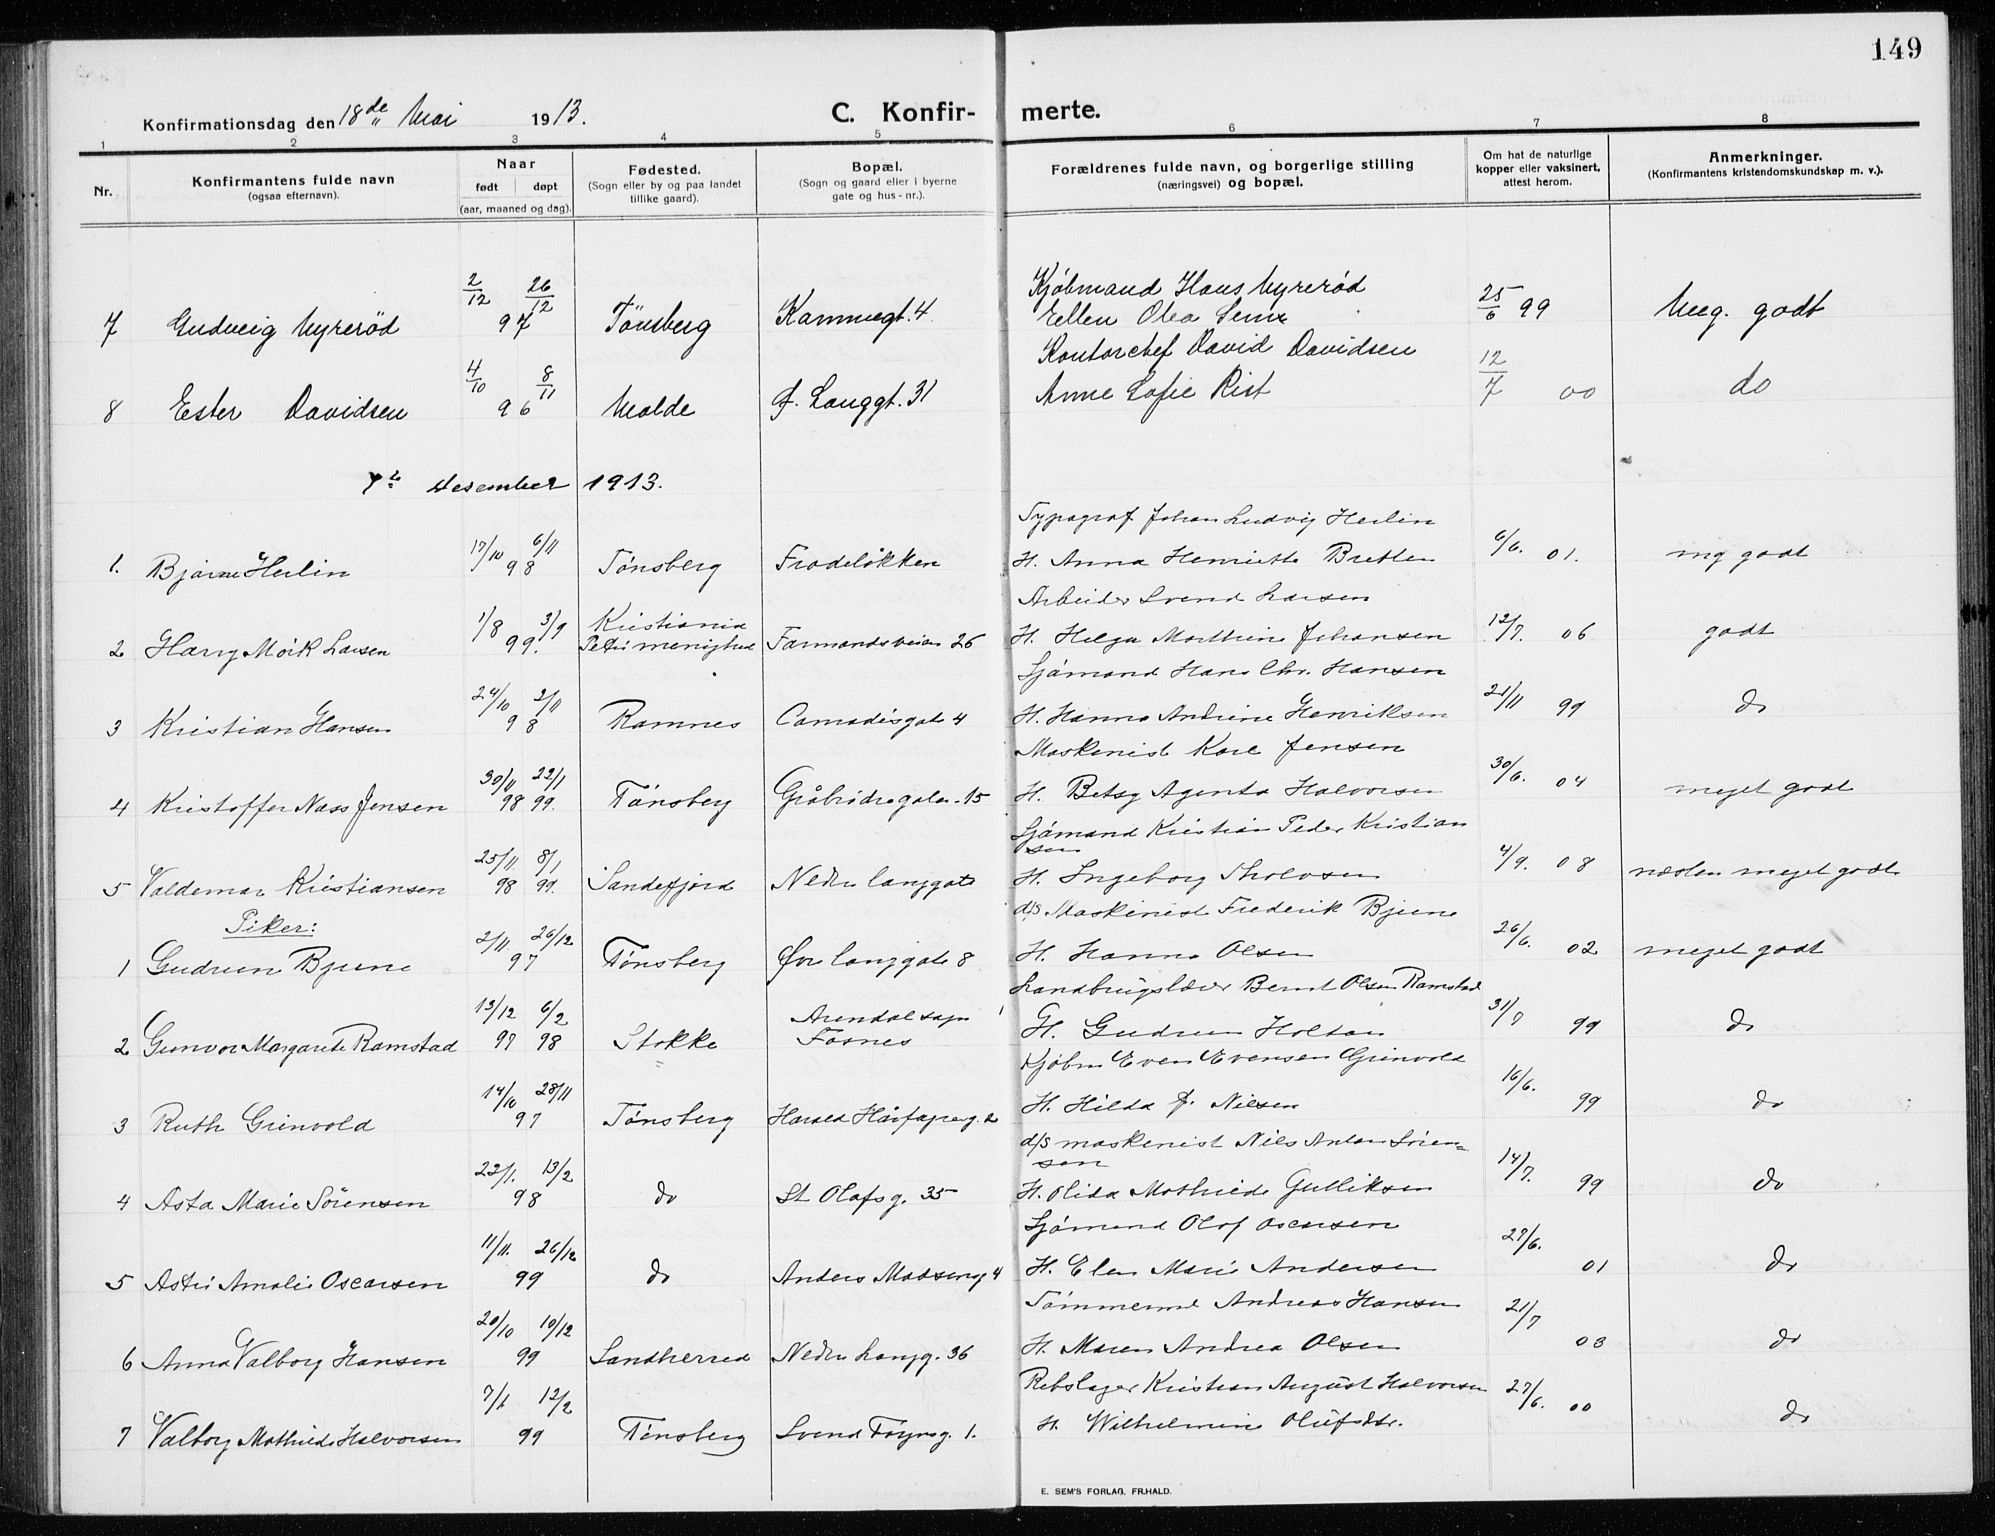 149
Konfirmationsdag den 18de Mai 1913. C. Konfir- merte.
1 2 3 4 5 6 7 8
Nr. Konfirmantens fulde navn (ogsaa efternavn). Naar født døpt (aar, maaned og dag). Fødested. (Sogn eller by og paa landet tillike gaard). Bopæl. (Sogn og gaard eller i byerne gate og hus-nr.). Forældrenes fulde navn, og borgerlige stilling (næringsvei) og bopæl. Om hat de naturlige kopper eller vaksinert, attest herom. Anmerkninger. (Konfirmantens kristendomskundskap m. v.).
Kjøbmand Hans Myrerød
7 Gudveig Myrerød 2/12 26/12 97 Tönsberg 4 Ellen Olea 25/6 99 Meg. godt
Kontorchef David Davidsen
8 Ester Davidsen 4/10 8/11 96 Molde Langgt. 31 Anne Sofie Rist 12/7 00 do
7de desember 1913.
Typograf Johan Ludvig Herlin
1. Bjarne Herlin 17/10 6/11 98 Tønsberg Frodeløkken H. Anna Henriette 6/6. 01. mg godt
Arbeider Svend Larsen
2 Harry Larsen 1/8 3/9 99. Kristiania Petri menighed Farmandsveien 26 H. Helga Mathine Johansen 12/7. 06 godt
Sjømand Hans Chr. Hansen
3 Kristian Hansen 24/10 2/11 98 Ramnes 4 H. Hanna Andrine Henriksen 21/11 99 do
Maskinist Karl Jensen
4 Kristoffer Næss Jensen 30/11 22/1 98 99. Tønsberg Gråbrødregaten 15 H. Betsy Agenta Halvorsen 30/6. 04 meget godt
Sjømand Kristian Peder Kristian
sen
5 Valdemar Kristiansen 25/11. 8/1 98 99. Sandefjord Nedre langgate H. Ingeborg 4/9. 08 næsten meget godt
Piker:
d/s Maskinist Frederik Bjune
1 Gudrun Bjune 2/11. 26/12 97 Tønsberg Øvre langgate 8 H. Hanna Olsen 26/6. 02 meget godt
Landbrugslærer Bernt Olsen Ramstad
2 Gunvor Margarete Ramstad 13/12 6/2 97 98 Stokke Arendal sogn Fosnes H. Gudrun Holtan 31/7 99 do
Kjøbm Even Evensen Grinvold
3 Ruth Grinvold 14/10 28/11 97 Tønsberg Harald Hårfagresg. 2 H. Hilda J. Nilsen 16/6. 99 do
d/s maskinist Nils Anton Sören=
sen
4 Asta Marie Sörensen 22/1. 13/2 98 do St Olafsg. 35 H. Olida Mathilde Gulliksen 14/7. 99 do
Sjømand Olaf Oscarsen
5 Astri Amalie Oscarsen 11/11. 26/12 99 do Anders Madsensg 4 H. Elen Marie Andersen 27/6. 01 do
Tømmermd Andreas Hansen
6 Anna Valborg Hansen 20/10 10/12 99 Sandherred Nedre Langg. 36 H. Maren Andrea Olsen 21/7 03 do
Rebslager Kristian August Halvorsen
7 Valborg Mathilde Halvorsen 7/1 12/2 99 Tønsberg Svend Føynsg. 1. H. Wilhelmine Olufsdtr. 27/6. 00 do
E. SEM'S FORLAG. FR.HALD.